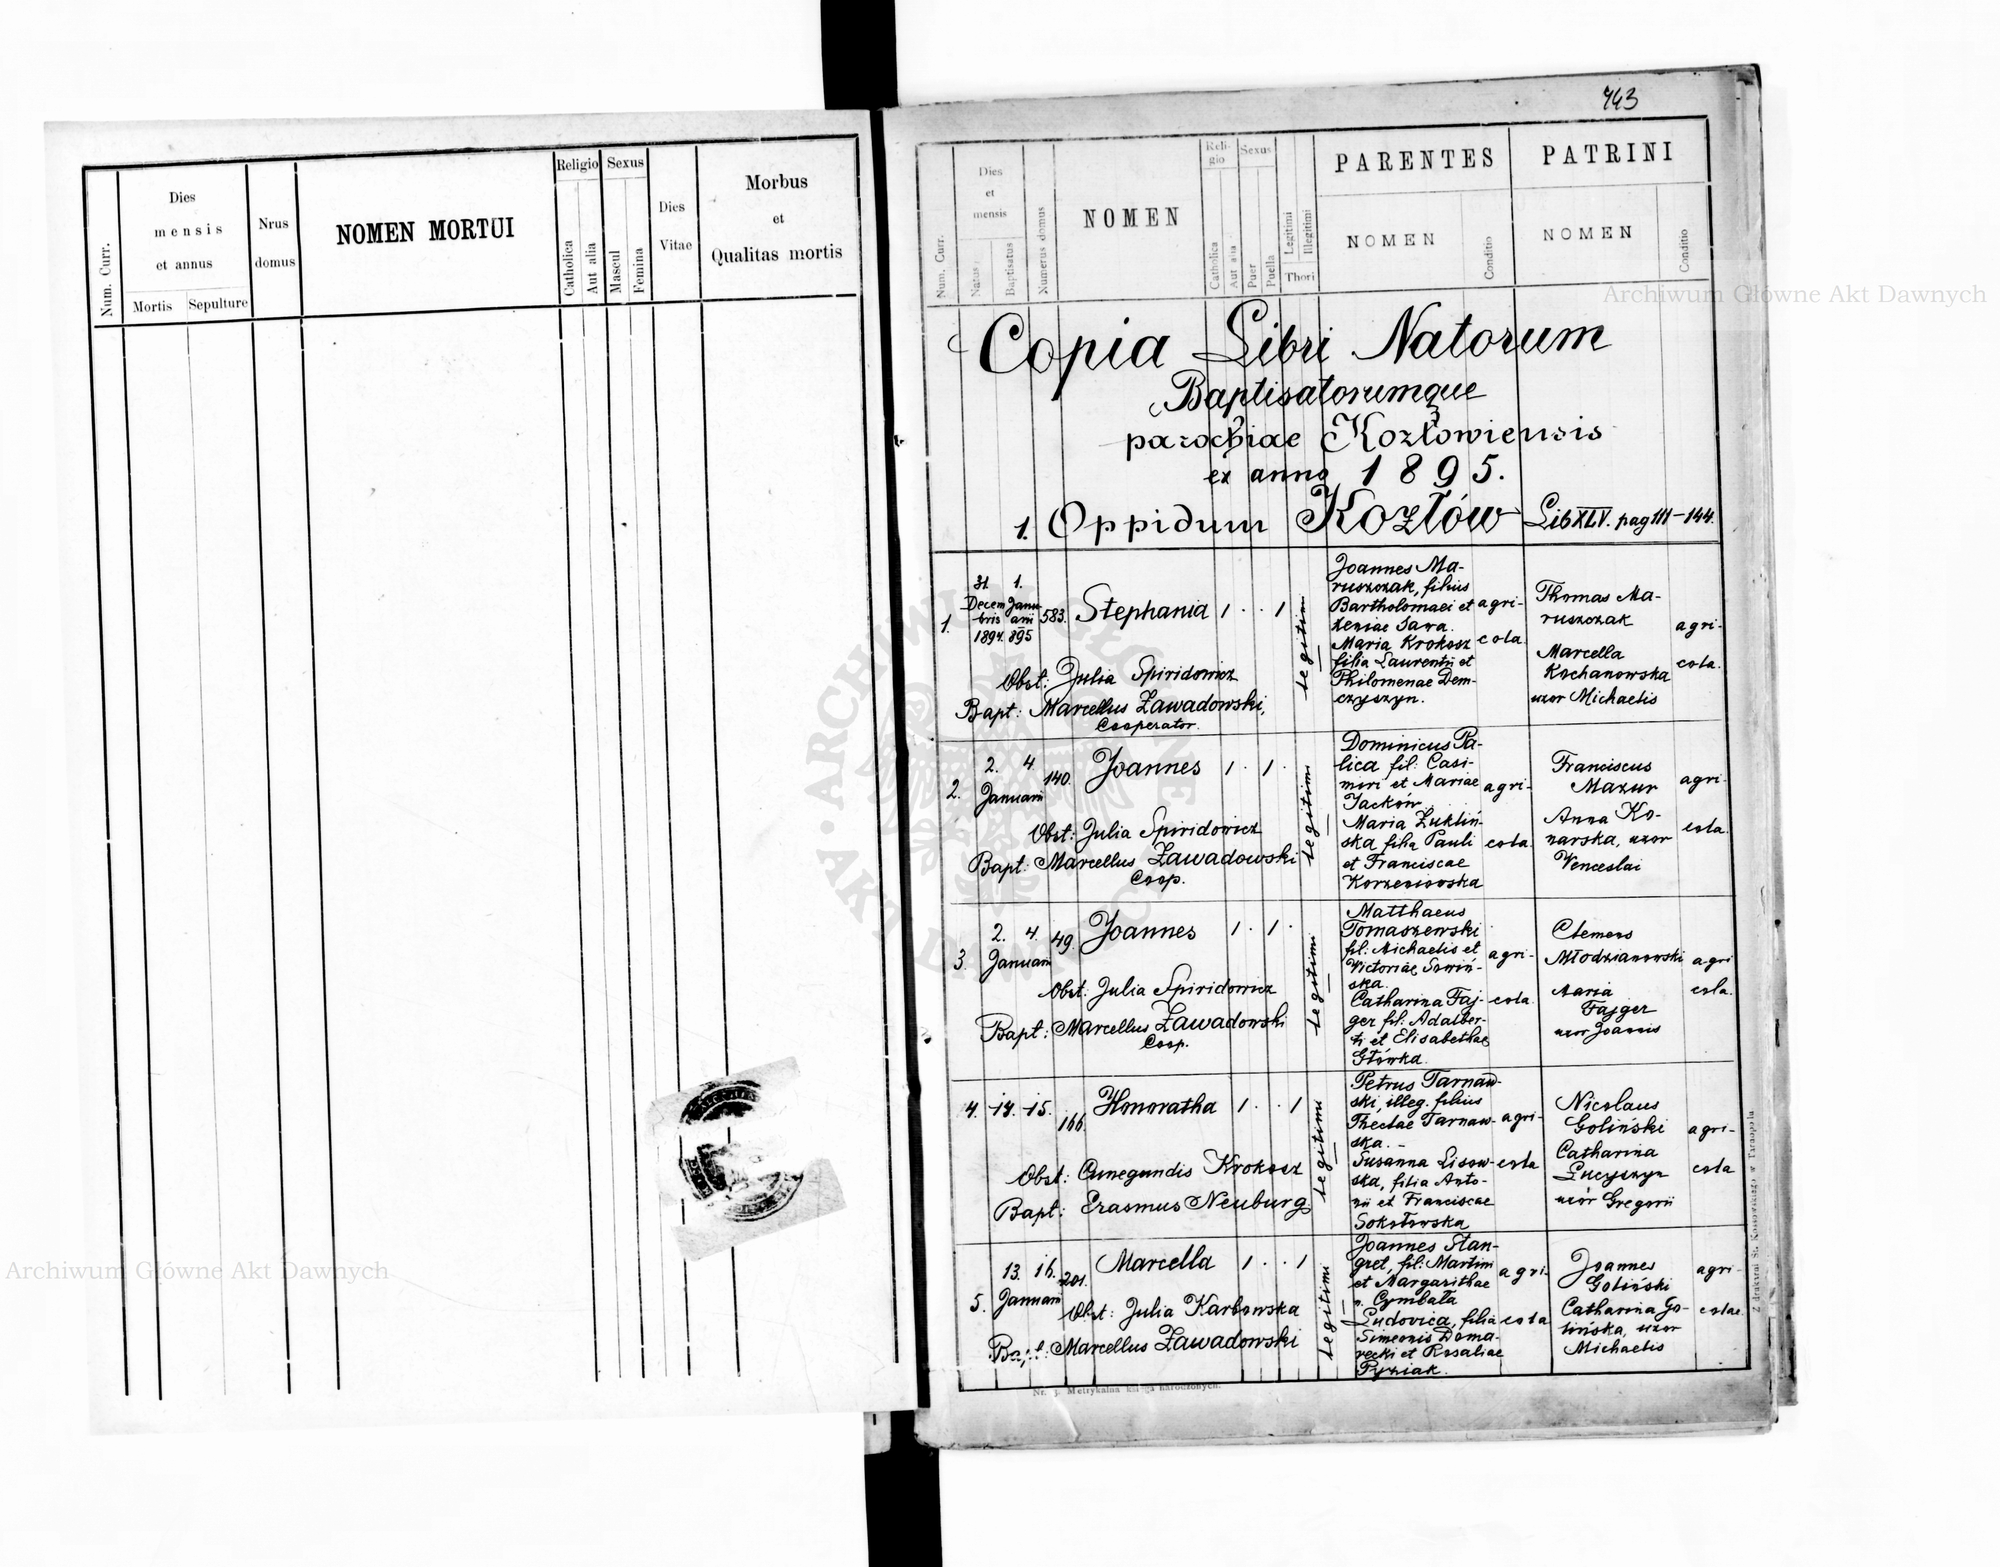 Num. Curr.
Dies
mensis
et annus
Mortis
Sepulture
Nrus
domus
NOMEN MORTUI
Religio
Catholica
Aut alia
Sexus
Mascul
Femina
Dies
Vitae
Morbus
et
Qualitas mortis
Archiwum Główne Akt Dawnych
743
Num. Curr.
Dies
et
mensis
Natus
Baptisatus
Numerus domus
NOMEN
Reli-
gio
Catholica
Aut alia
Sexus
Puer
Puella
Legitimi
Illegitimi
Thori
PARENTES
NOMEN
Conditio
PATRINI
NOMEN
Conditio
Archiwum Główne Akt Dawnych
Copia Libri Natorum
Baptisatorumque
parochiae Kozłowiensis
ex anno 1895.
1. Oppidum Kozłów Lib XLV. pag 111-144.
1.
31 1.
Decem Janu-
bris arii
1894. 895
583.
Stephania 1 . . 1
legitimi
Obst: Julia Spiridowicz
Bapt: Marcellus Zawadowski,
Cooperator.
Joannes Ma-
ruszczak, filius
Bartholomaei et
Xeniae Sawa.
Maria Krokosz
filia Laurentii et
Philomenae Dem-
czyszyn.
agri-
cola
Thomas Ma-
ruszczak
Marcella
Kochanowska
uxor Michaelis
agri-
cola.
2.
2. 4.
Januarii
140.
Joannes 1 . 1 .
legitimi
Obst: Julia Spiridowicz
Bapt: Marcellus Zawadowski
Coop.
Dominicus Pa-
lica fil: Casi-
miri et Mariae
Jacków.
Maria Żukliń-
ska filia Pauli
et Franciscae
Korzeniowska
agri-
cola.
Franciscus
Mazur
Anna Ko-
narska, uxor
Venceslai
agri-
cola.
3.
2. 4.
Januarii
49.
Joannes 1 . 1 .
legitimi
Obst: Julia Spiridowicz
Bapt: Marcellus Zawadowski
Coop.
Matthaeus
Tomaszewski
fil: Michaelis et
Victoriae Sowiń-
ska.
Catharina Faj-
ger fil: Adalber-
ti et Elisabethae
Główka.
agri-
cola
Clemens
Młodzianowski
Maria
Fajger
uxor Joannis
agri
cola.
4. 14. 15.
166.
Honoratha 1 . . 1
legitimi
Obst: Cunegundis Krokosz
Bapt: Erasmus Neuburg
Petrus Tarnaw-
ski, illeg. filius
Theclae Tarnaw-
ska. -
Susanna Lisow-
ska, filia Anto-
nii et Franciscae
Sokołowska
agri-
cola
Nicolaus
Goliński
Catharina
Łucyszyn
uxor Gregorii
agri-
cola
5.
13. 16.
Januarii
201.
Marcella 1 . . 1
legitimi
Obst: Julia Karbowska
Bapt: Marcellus Zawadowski
Joannes Stan-
gret, fil: Martini
et Margarithae
n. Cymbała
Ludovica, filia
Simeonis Doma-
recki et Rosaliae
Pyziak.
agri-
cola
Joannes
Goliński
Catharina Go-
lińska, uxor
Michaelis
agri-
colae
Nr. 3. Metrykalna księga narodzonych.
Z drukarni St. Kossowskiego w Tarnopolu
Archiwum Główne Akt Dawnych